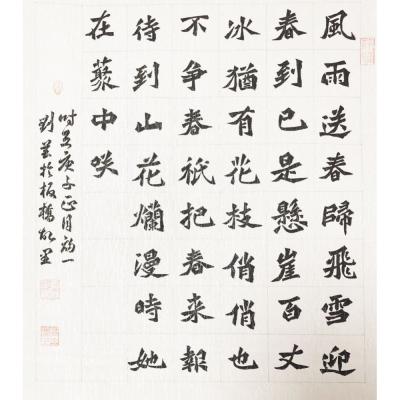 風雨送春歸飛雪迎
春到已是懸崖百丈
冰猶有花枝俏俏也
不争春祇把春来報
待到山花爛漫時她
在藂中咲
庚子正月初一
於板橋